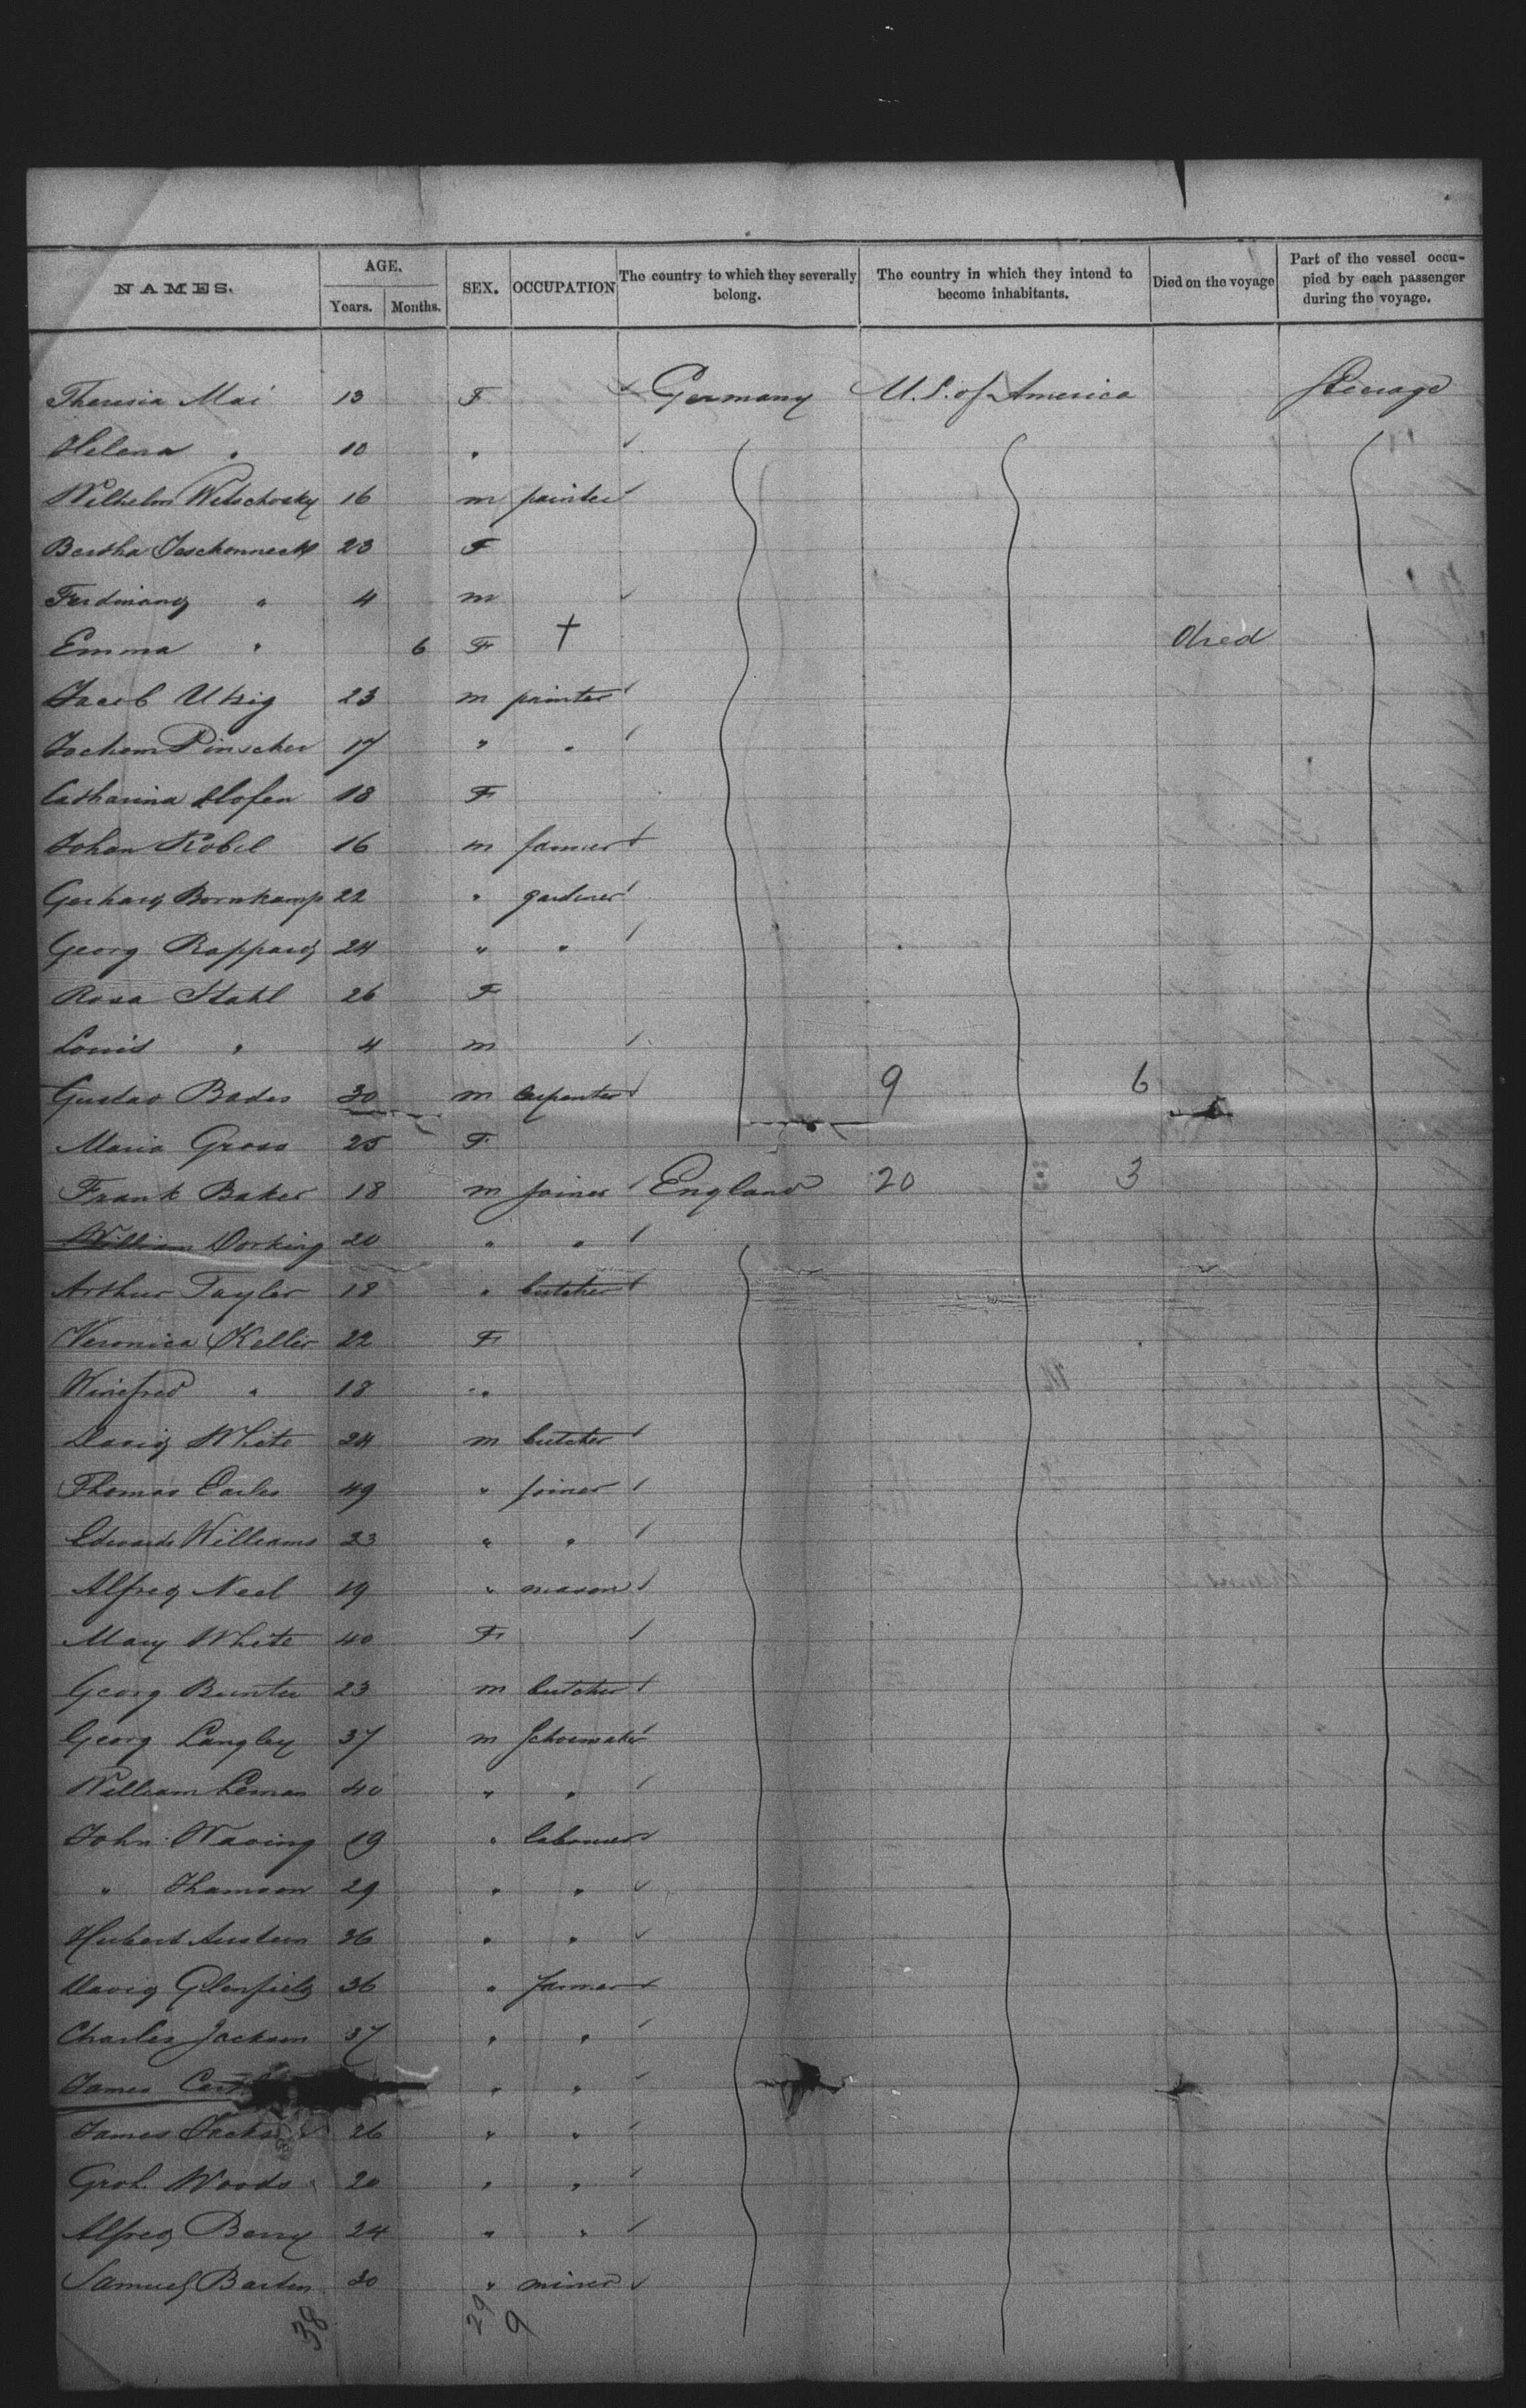 NAMES. AGE. Years. Months. SEX. OCCUPATION The country to which they severally belong. The country in which they intend to become inhabitants. Died on the voyage Part of the vessel occupied by each passenger during the voyage.
Theresia Mai 13 F Germany U.S. of America Steerage
Helena " 10 "
Wilhelm 16 m painter
Bertha 23 F
Ferdinand " 4 m
Emma " 6 F † died
Jacob 23 m painter
Jochem Pinscher 17 " "
Catharina Hofen 18 F
Johan Kobel 16 m farmer
Gerhard Bornkamp 22 " gardener
Georg Rappard 24 " "
Rosa Stahl 26 F
Louis " 4 m
Gustav Bades 30 m carpenter 9 6
Maria Gross 25 F
Frank Baker 18 m joiner England 20 3
William Dorking 20 " "
Arthur Tayler 18 " butcher
Veronica Keller 22 F
Winefred " 18 "
David White 24 m butcher
Thomas Earles 49 " joiner
Edwards Williams 23 " "
Alfred Neel 19 " mason
Mary White 40 F
Georg Bunter 23 m butcher
Georg Langley 37 m Schoemaker
William Leman 40 " "
John Waving 19 " labourer
" Thamson 29 " "
Hubert Austen 36 " "
David Glenfield 36 " farmer
Charles Jackson 37 " "
James " "
James 26 " "
Woods 20 " "
Alfred Berry 24 " "
Samuel Barten 30 " miner
38 29 9